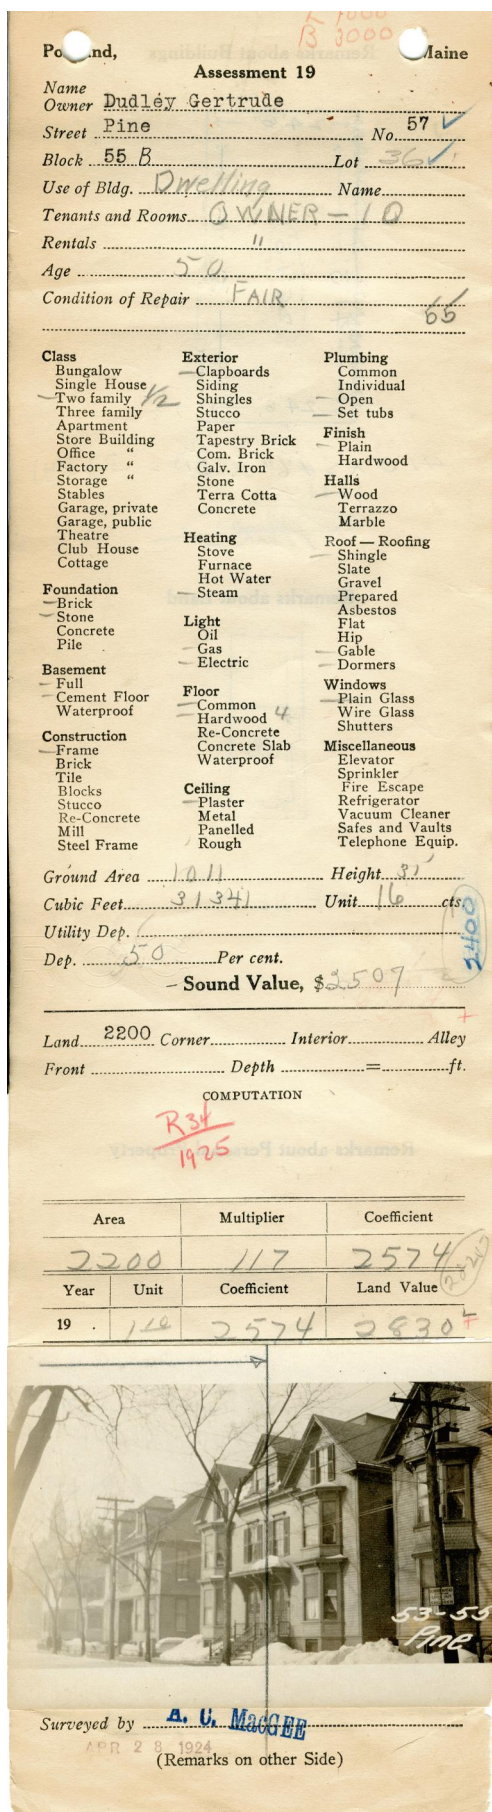 L 3000
B 3000
Portland, Maine
Assessment 19
Name
Owner Dudley Gertrude
Street Pine No. 57 ✓
Block 55 B Lot 36 ✓
Use of Bldg. Dwelling Name
Tenants and Rooms OWNER - 10
Rentals "
Age 50
Condition of Repair FAIR
55
Class
Bungalow
Single House
Two family 1/2
Three family
Apartment
Store Building
Office "
Factory "
Storage "
Stables
Garage, private
Garage, public
Theatre
Club House
Cottage
Foundation
Brick
Stone
Concrete
Pile
Basement
Full
Cement Floor
Waterproof
Construction
Frame
Brick
Tile
Blocks
Stucco
Re-Concrete
Mill
Steel Frame
Exterior
Clapboards
Siding
Shingles
Stucco
Paper
Tapestry Brick
Com. Brick
Galv. Iron
Stone
Terra Cotta
Concrete
Heating
Stove
Furnace
Hot Water
Steam
Light
Oil
Gas
Electric
Floor
Common
Hardwood 4
Re-Concrete
Concrete Slab
Waterproof
Ceiling
Plaster
Metal
Panelled
Rough
Plumbing
Common
Individual
Open
Set tubs
Finish
Plain
Hardwood
Halls
Wood
Terrazzo
Marble
Roof — Roofing
Shingle
Slate
Gravel
Prepared
Asbestos
Flat
Hip
Gable
Dormers
Windows
Plain Glass
Wire Glass
Shutters
Miscellaneous
Elevator
Sprinkler
Fire Escape
Refrigerator
Vacuum Cleaner
Safes and Vaults
Telephone Equip.
Ground Area 1011 Height 31'
Cubic Feet 31341 Unit 16 cts.
Utility Dep.
Dep. 50 Per cent.
2400
Sound Value, $2507
Land 2200 Corner Interior Alley
Front Depth = ft.
COMPUTATION
R34
1925
Area Multiplier Coefficient
2200 117 2574
Year Unit Coefficient Land Value
19 . 110 2574 2830
53-55
Pine
Surveyed by A. C. MacGEE
APR 28 1924
(Remarks on other Side)